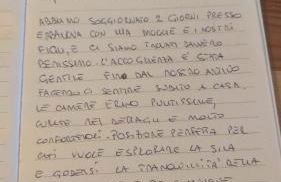 ABBIAMO SOGGIORNATO 2 GIORNI PRESSO
CON MIA MOGLIE E I NOSTRI
FIGLI, E CI SIAMO TROVATI DAVVERO
BENISSIMO. L'ACCOGLIENZA È STATA
GENTILE FIN DAL NOSTRO ARRIVO
FACENDOCI SENTIRE SUBITO A CASA.
LE CAMERE ERANO PULITISSIME,
CURATE NEI DETTAGLI E MOLTO
CONFORTEVOLI. POSIZIONE PERFETTA PER
CHI VUOLE ESPLORARE LA SILA
E GODERSI LA TRANQUILLITÀ DELLA